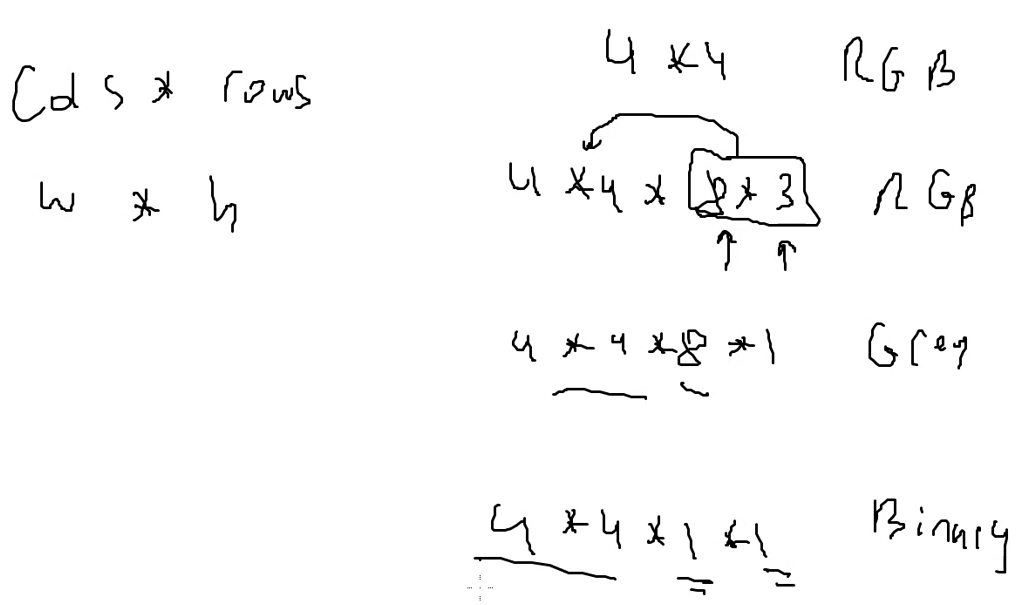 Cols * rows
w * h
4 * 4 RGB
4 * 4 * 8 * 3 RGB
4 * 4 * 8 * 1 Grey
4 * 4 * 1 * 1 Binary